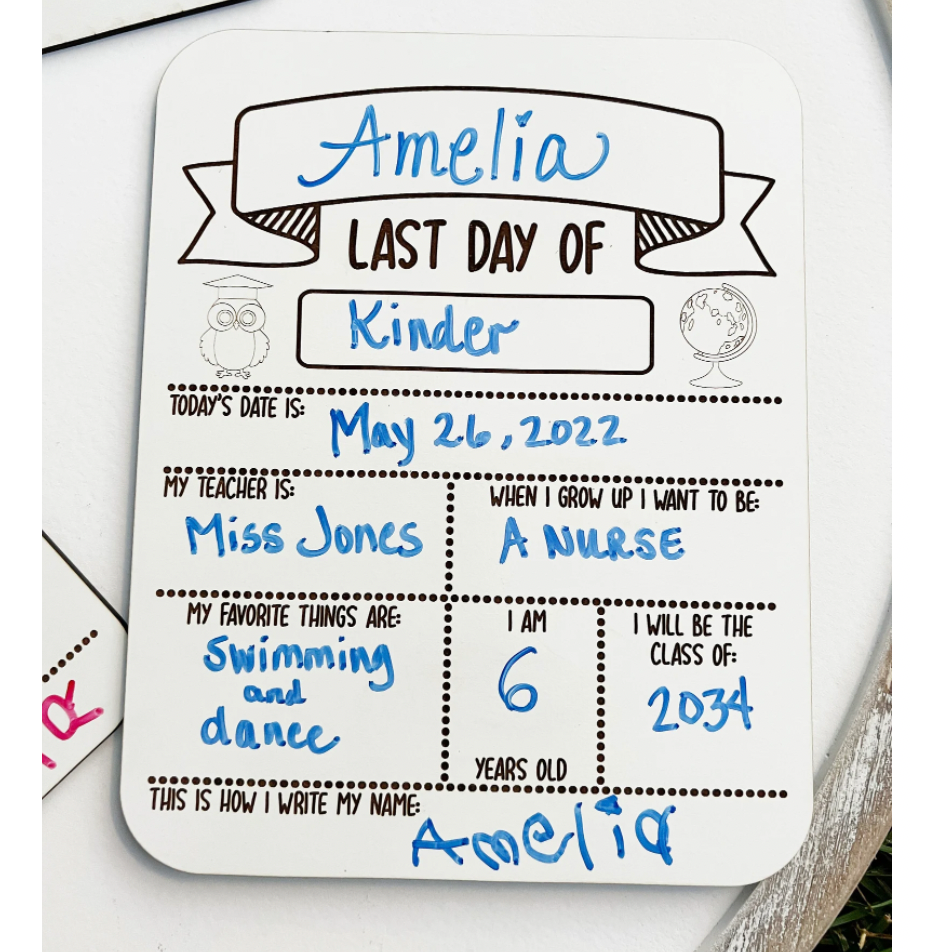 Amelia
LAST DAY OF
Kinder
TODAY'S DATE IS: May 26, 2022
MY TEACHER IS:
Miss Jones
WHEN I GROW UP I WANT TO BE:
A NURSE
MY FAVORITE THINGS ARE:
Swimming
and
dance
I AM
6
YEARS OLD
I WILL BE THE
CLASS OF:
2034
THIS IS HOW I WRITE MY NAME: Amelia